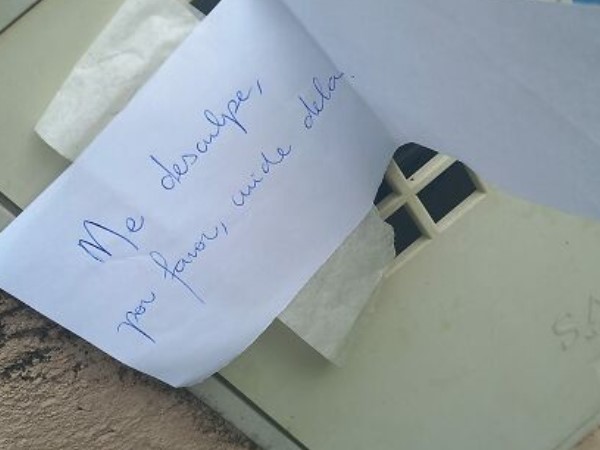 Me desculpe,
por favor, cuide dela.